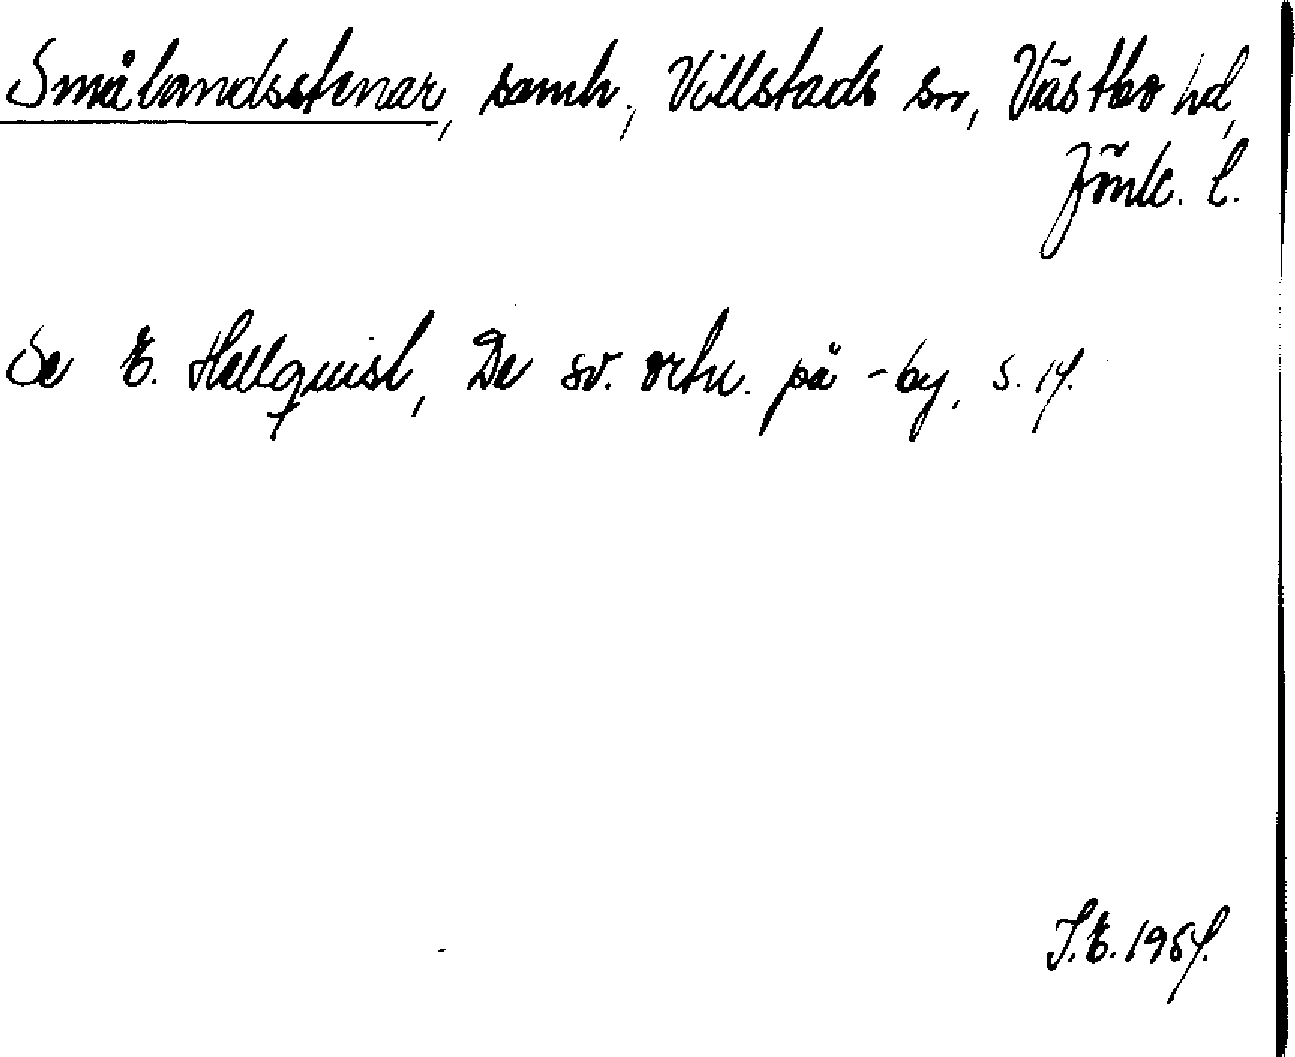 Smålandsstenar, samh., Villstads sn, Västbo hd,
Jönk. l.
Se E. Hellquist, De sv. ortn. på -by, s. 14.
J.E. 1954.